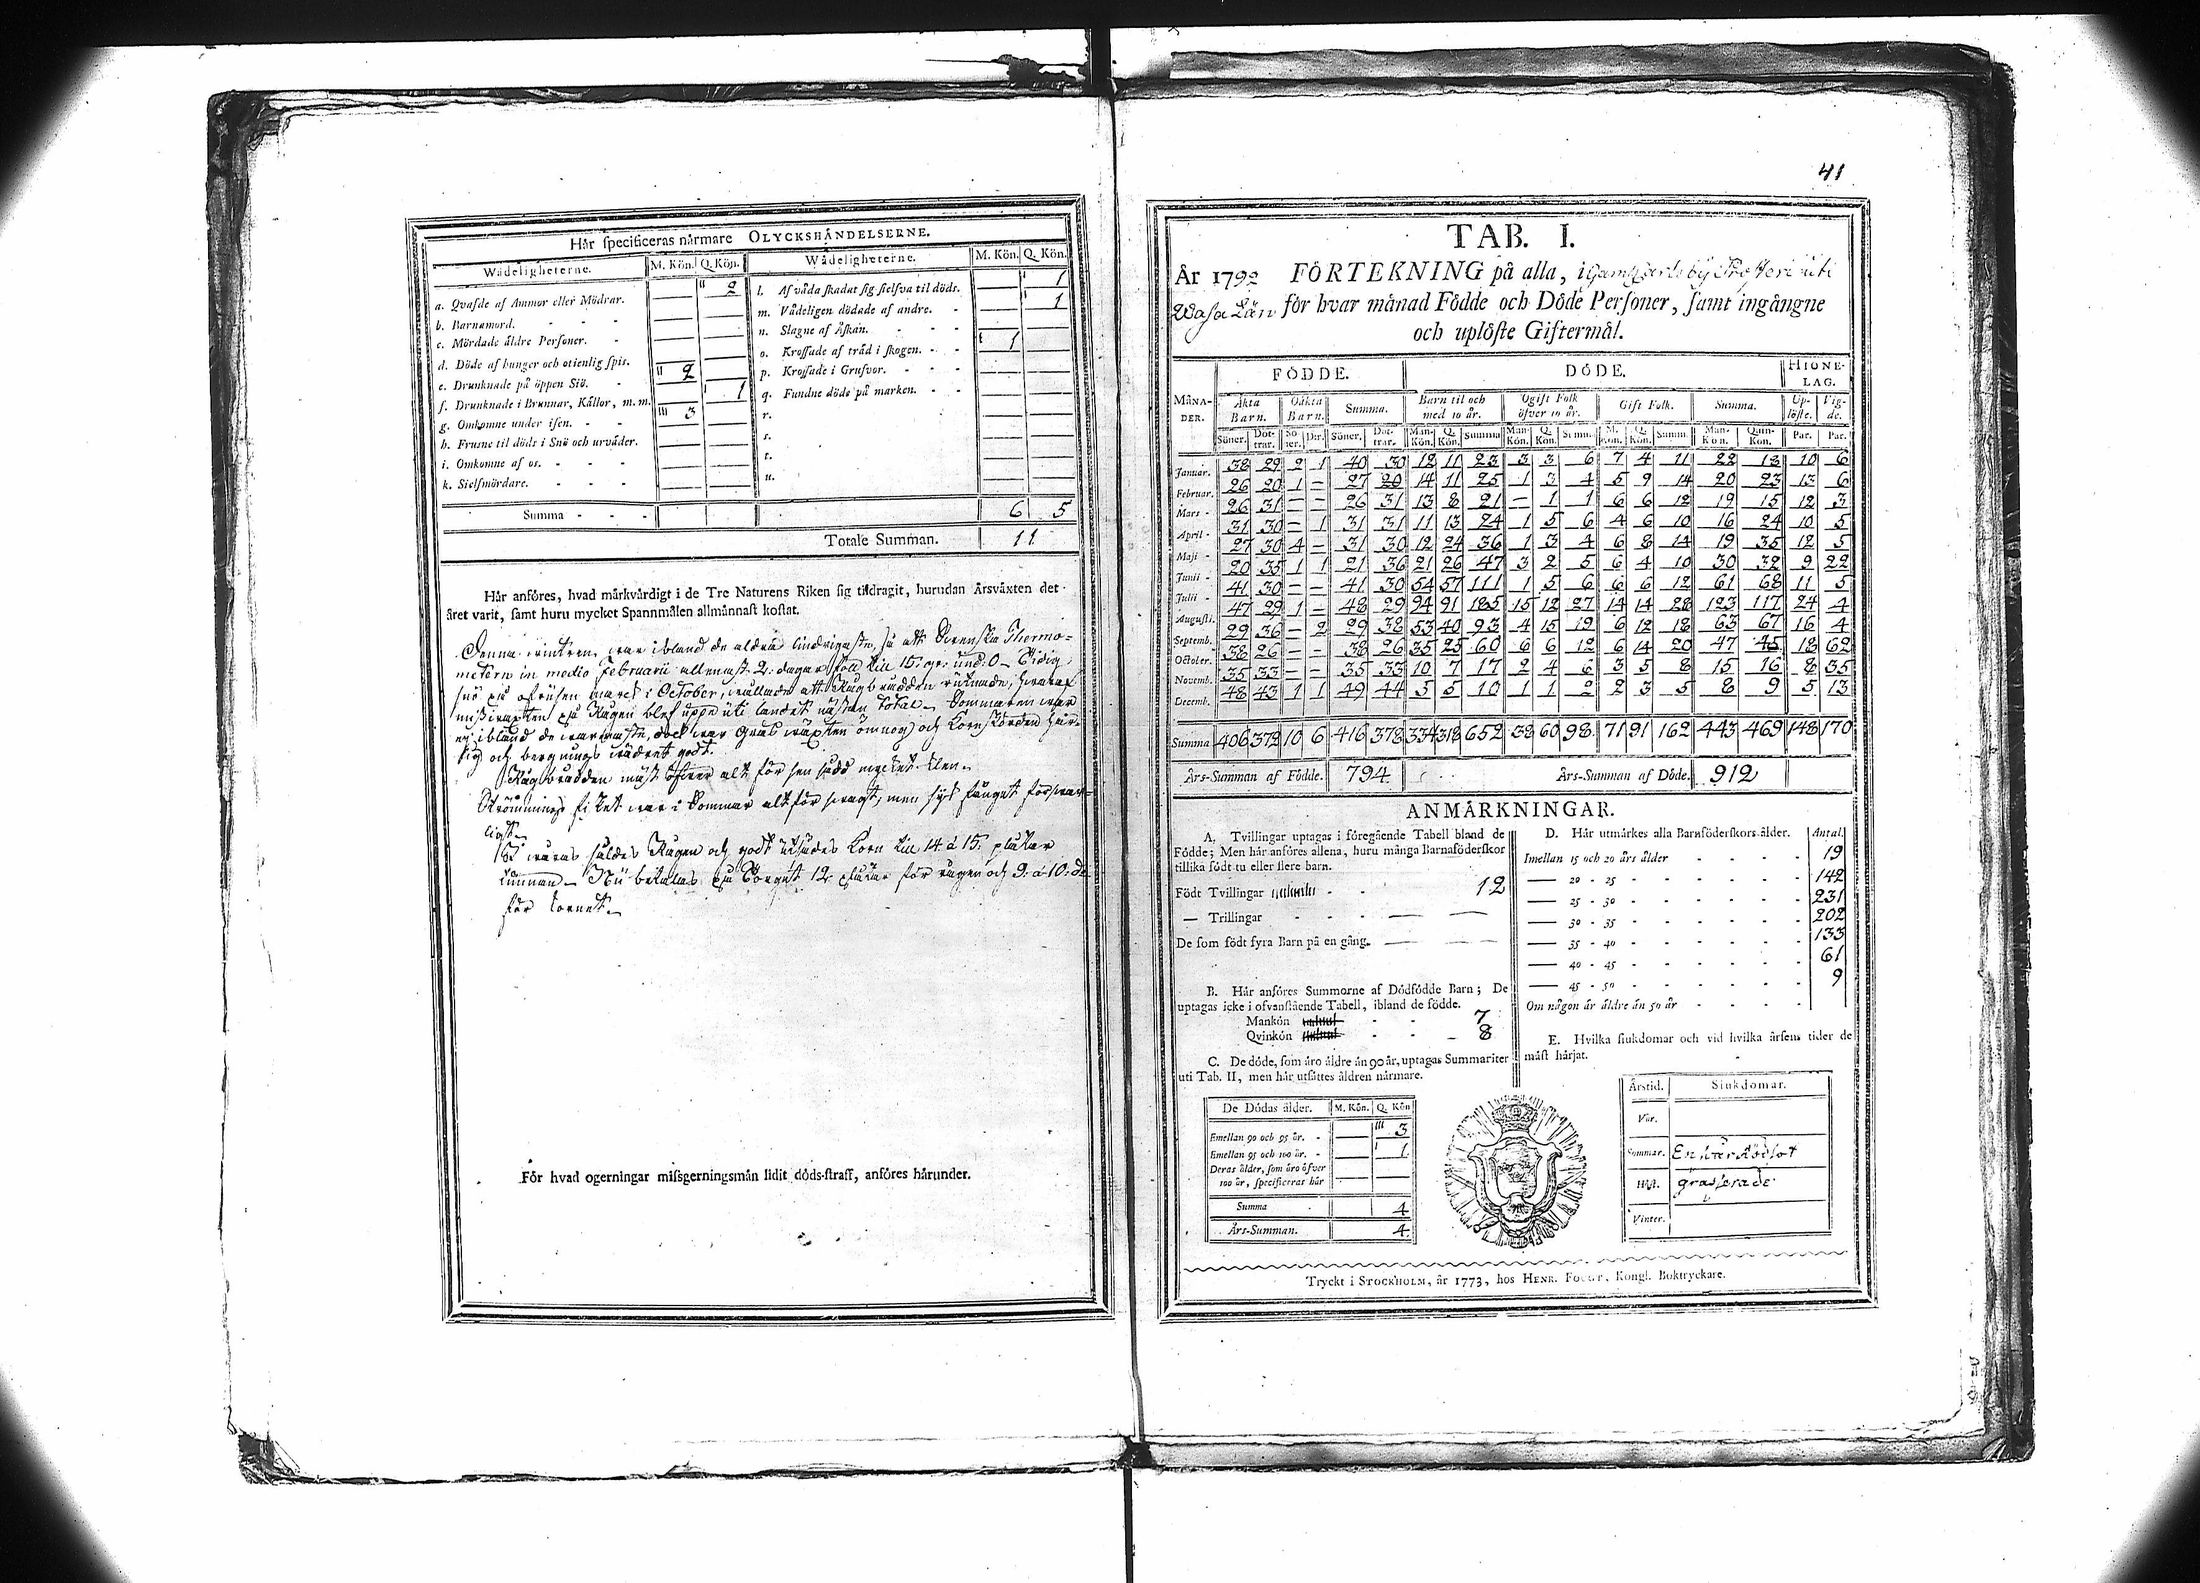 Här specificeras närmare OLYCKSHÄNDELSERNE.
Wådeligheterne. M. Kön. Q. Kön. Wådeligheterne. M. Kön. Q. Kön.
a. Qvafde af Ammor eller Mödrar. 2
b. Barnamord.
c. Mördade äldre Personer.
d. Döde af hunger och otienlig spis.
e. Drunknade på öppen Siö. 2
f. Drunknade i Brunnar, Källor, m. m. 1
g. Omkomne under isen. 3
h. Frusne til döds i Snö och urväder.
i. Omkomne af os.
k. Sielfmördare.
l. Af våda skadat sig sielfva til döds. 1
m. Vådeligen dödade af andre. 1
n. Slagne af Åskan.
o. Krossade af träd i skogen. 1
p. Krossade i Grufvor.
q. Fundne döde på marken.
r.
s.
t.
u.
Summa 6 5
Totale Summan. 11
Här anföres, hvad märkvärdigt i de Tre Naturens Riken sig tildragit, hurudan Årsväxten det
året varit, samt huru mycket Spannmålen allmännast kostat.
Denna wintren war ibland de aldra lindrigaste, så att Swenska Thermo-
metern in medio Februarii allenast 2. dagar föll till 15. gr. und. 0
snö på ofrusen mark i October, wållade att Rågbrodden rutnade, hwaraf
misswäxten på Rågen blef uppe uti landet nästan total. Sommaren war
ej ibland de warmaste, dock war Gräs wäxten ömnog och Kornskörden
och bergnings wädret godt.
Rågbrodden
Strömmings fisket war i Sommar alt för swagt, men
ligt.
I wåras såldes Rågen och godt Korn till 14 à 15. plåtar
tunnan. Nu betalas på Torget 12 plåtar för rågen och 9. à 10. do
för kornet.
För hvad ogerningar missgerningsmän lidit döds-straff, anföres härunder.
41
TAB. I.
År 1792 FÖRTEKNING på alla, i Gamlkarleby Prosteri uti
Wasa Län för hvar månad Födde och Döde Personer, samt ingångne
och uplöste Giftermål.
MÅNA-DER. FÖDDE. DÖDE. HIONE-LAG.
Äkta Barn. Oäkta Barn. Summa. Barn til och med 10 år. Ogift Folk öfver 10 år. Gift Folk. Summa. Up-löste. Vig-de.
Söner. Dot-trar. Sö-ner. Dtr. Söner. Dot-trar. Man-Kön. Q. Kön. Summa Man-Kön. Q. Kön. Summ. M. Kön. Q. Kön. Summ. Man-Kön. Qvin-Kön. Par. Par.
Januar. 38 29 2 1 40 30 12 11 23 3 3 6 7 4 11 22 18 10 6
Februar. 26 20 1 – 27 20 14 11 25 1 3 4 5 9 14 20 23 13 6
Mars 26 31 – – 26 31 13 8 21 – 1 1 6 6 12 19 15 12 3
April 31 30 – 1 31 31 11 13 24 1 5 6 4 6 10 16 24 10 5
Maji 27 30 4 – 31 30 12 24 36 1 3 4 6 8 14 19 35 12 5
Junii 20 35 1 1 21 36 21 26 47 3 2 5 6 4 10 30 32 9 22
Julii 41 30 – – 41 30 54 57 111 1 5 6 6 6 12 61 68 11 5
Augusti. 47 29 1 – 48 29 94 91 185 15 12 27 14 14 28 123 117 24 4
Septemb. 29 36 – 2 29 38 53 40 93 4 15 19 6 12 18 63 67 16 4
October. 38 26 – – 38 26 35 25 60 6 6 12 6 14 20 47 45 18 62
Novemb. 35 33 – – 35 33 10 7 17 2 4 6 3 5 8 15 16 8 35
Decemb. 48 43 1 1 49 44 5 5 10 1 1 2 2 3 5 8 9 5 13
Summa 406 372 10 6 416 378 334 318 652 38 60 98 71 91 162 443 469 148 170
Års-Summan af Födde. 794 Års-Summan af Döde. 912
ANMÄRKNINGAR.
A. Tvillingar uptagas i föregående Tabell bland de
Födde; Men här anföres allena, huru många Barnaföderskor
tillika född tu eller flere barn.
Födt Tvillingar 12
— Trillingar
De som födt fyra Barn på en gång.
B. Här anföres Summorne af Dödfödde Barn; De
uptagas icke i ofvanstående Tabell, ibland de födde.
Mankön 7
Qvinkön 8
C. De döde, som äro äldre än 90 år, uptagas Summariter
uti Tab. II, men här utsättes åldren närmare.
De Dödas ålder. M. Kön. Q. Kön
Emellan 90 och 95 år. 3
Emellan 95 och 100 år. 1
Deras ålder, som äro öfver
100 år, specificeras här
Summa 4
Års-Summan. 4
D. Här utmärkes alla Barnföderskors ålder. Antal.
Imellan 15 och 20 års ålder 19
— 20 - 25 142
— 25 - 30 231
— 30 - 35 202
— 35 - 40 133
— 40 - 45 61
— 45 - 50 9
Om någon är äldre än 50 år
E. Hvilka siukdomar och vid hvilka årsens tider de
mäst härjat.
Årstid. Siukdomar.
Vår.
Sommar. En svår Rödsot
Höst. grasserade
Vinter.
Tryckt i STOCKHOLM, år 1773, hos HENR. FOUGT, Kongl. Boktryckare.